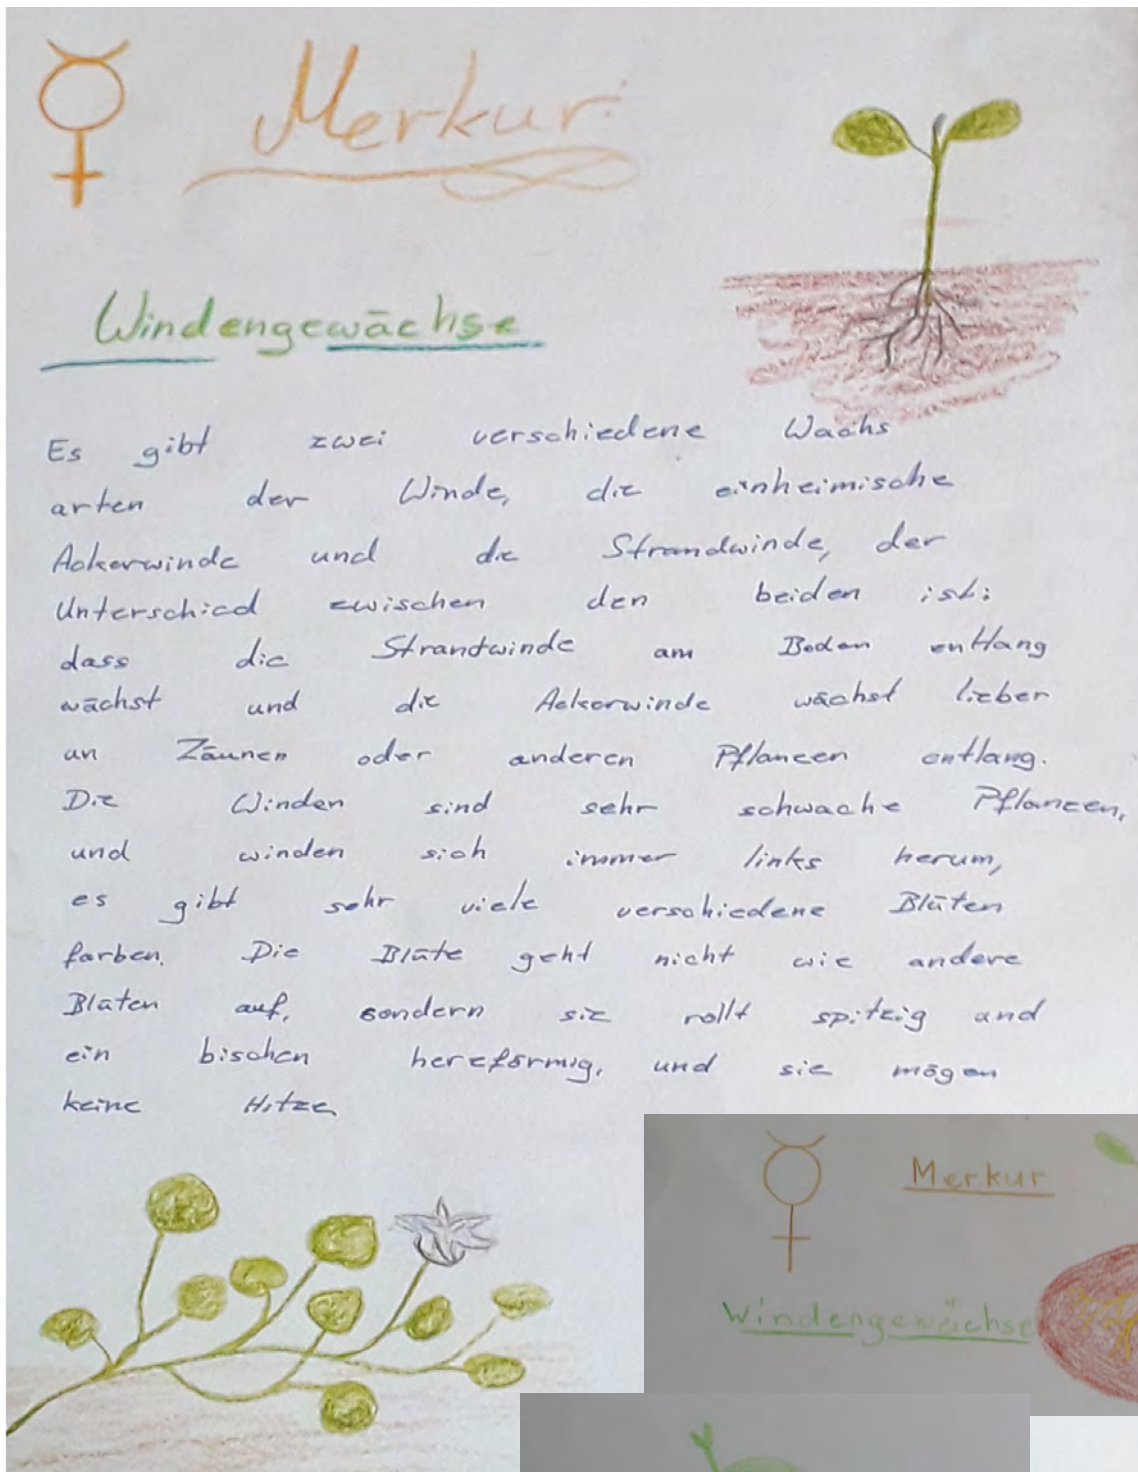 Merkur:
Windengewächse
Es gibt zwei verschiedene Wachs
arten der Winde, die einheimische
Ackerwinde und die Strandwinde, der
Unterschied zwischen den beiden ist:
dass die Strantwinde am Boden entlang
wächst und die Ackerwinde wächst lieber
an Zäunen oder anderen Pflanzen entlang.
Die Winden sind sehr schwache Pflanzen,
und winden sich immer links herum,
es gibt sehr viele verschiedene Blüten
farben. Die Blüte geht nicht wie andere
Blüten auf, sondern sie rollt spitzig and
ein bischen herzförmig, und sie mögen
keine Hitze
Merkur
Windengewächse